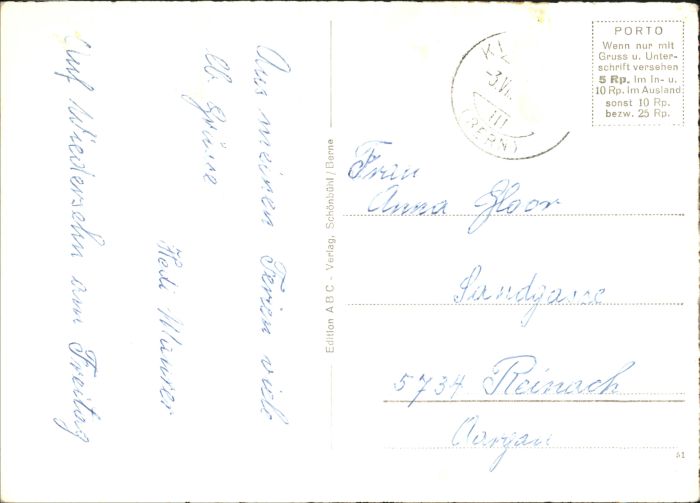 Aus meinen Ferien viele
lb. Grüsse
Hedi
Auf Wiedersehn am Freitag
Edition ABC - Verlag, Schönbühl/Berne
(BERN)
PORTO
Wenn nur mit
Gruss u. Unter-
schrift versehen
5 Rp. im In- u.
10 Rp. im Ausland
sonst 10 Rp.
bezw. 25 Rp.
Frau
Anna Gloor
Sandgasse
5734 Reinach
Aargau
51